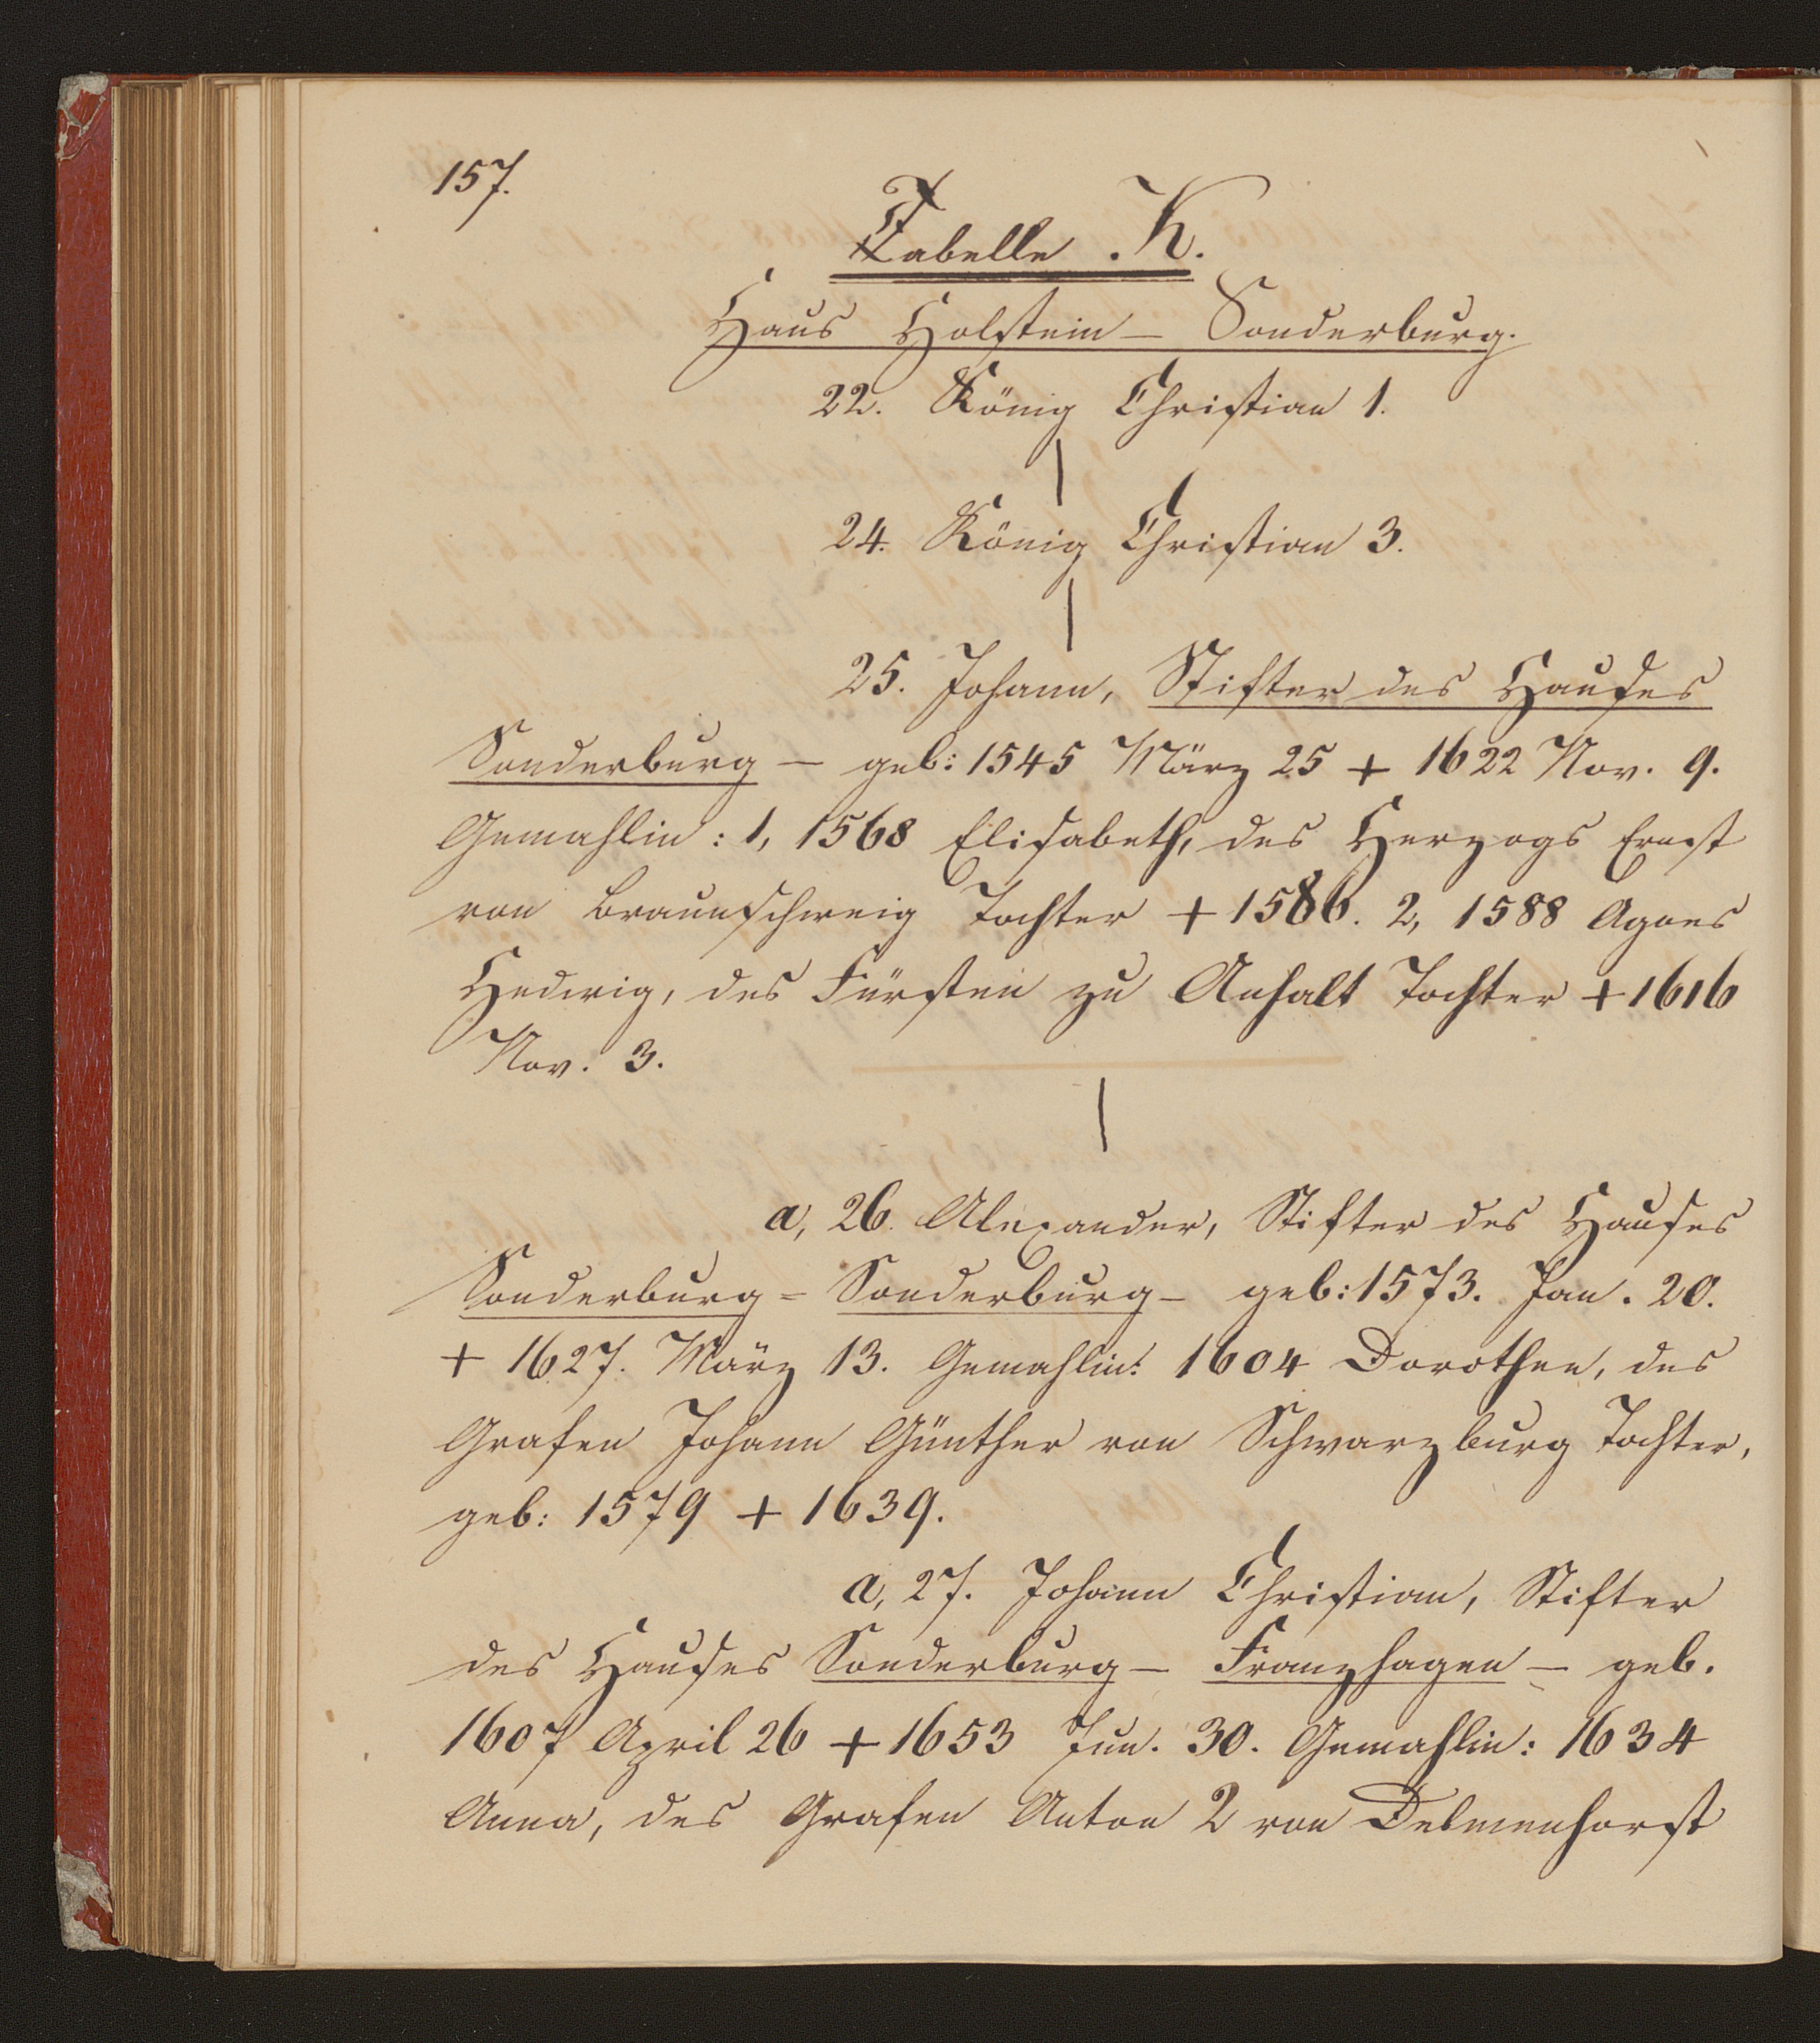 157.
Tabelle K.
Haus Holstein – Sonderburg.
22. König Christian 1.
24. König Christian 3.
25. Johann, Stifter des Hauses
Sonderburg – geb: 1545 März 25 + 1622 Nov. 9.
Gemahlin: 1, 1568 Elisabeth, des Herzogs Ernst
von Braunschweig Tochter + 1586. 2, 1588 Agnes
Hedwig, des Fürsten zu Anhalt Tochter + 1616
Nov. 3.
a, 26. Alexander, Stifter des Hauses
Sonderburg = Sonderburg – geb: 1573. Jan. 20.
+ 1627. März 13. Gemahlin: 1604 Dorothee, des
Grafen Johann Günther von Schwarzburg Tochter,
geb: 1579 + 1639.
a, 27. Johann Christian, Stifter
des Hauses Sonderburg – Franzhagen – geb.
1607 April 26 + 1653 Jun. 30. Gemahlin: 1634
Anna, des Grafen Anton 2 von Delmenhorst